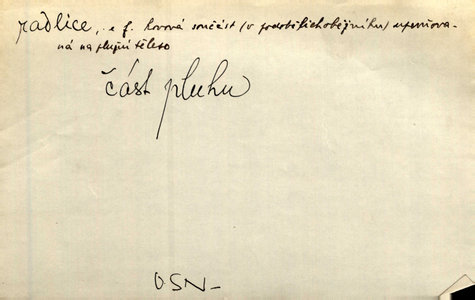 radlice, -e f. kovová součást (v podobě lichoběžníku) upevňova-
ná na plužní těleso
část pluhu
OSN-